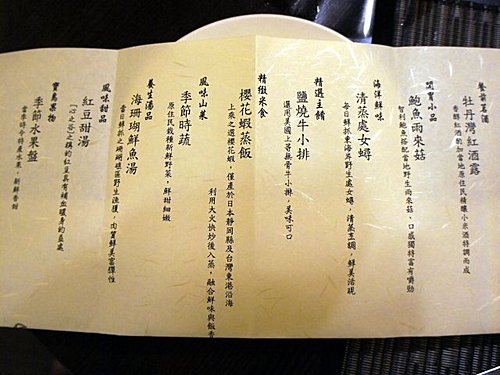 餐前茗酒
牡丹灣紅酒露
香醇紅酒酌加當地原住民精釀小米酒特調而成
開胃小品
鮑魚雨來菇
智利鮑魚搭配當地野生雨來菇，口感獨特富有嚼勁
海洋鮮味
清蒸處女蟳
每日鮮抓東海岸野生處女蟳，清蒸烹調，鮮美活現
精選主餚
鹽燒牛小排
選用美國上等無骨牛小排，美味可口
精緻米食
櫻花蝦蒸飯
上來之選櫻花蝦，僅產於日本靜岡縣及台灣東港沿海
利用大火快炒後入蒸，融合鮮味與飯香
風味山菜
季節時蔬
原住民栽種新鮮野菜，鮮甜細嫩
養生湯品
海珊瑚鮮魚湯
當日鮮抓之珊瑚礁區野生漁獲，肉質鮮美富彈性
風味甜品
紅豆甜湯
「心之谷」之稱的紅豆具有補血暖身的益處
寶島果物
季節水果盤
當季時令特產水果，新鮮香甜